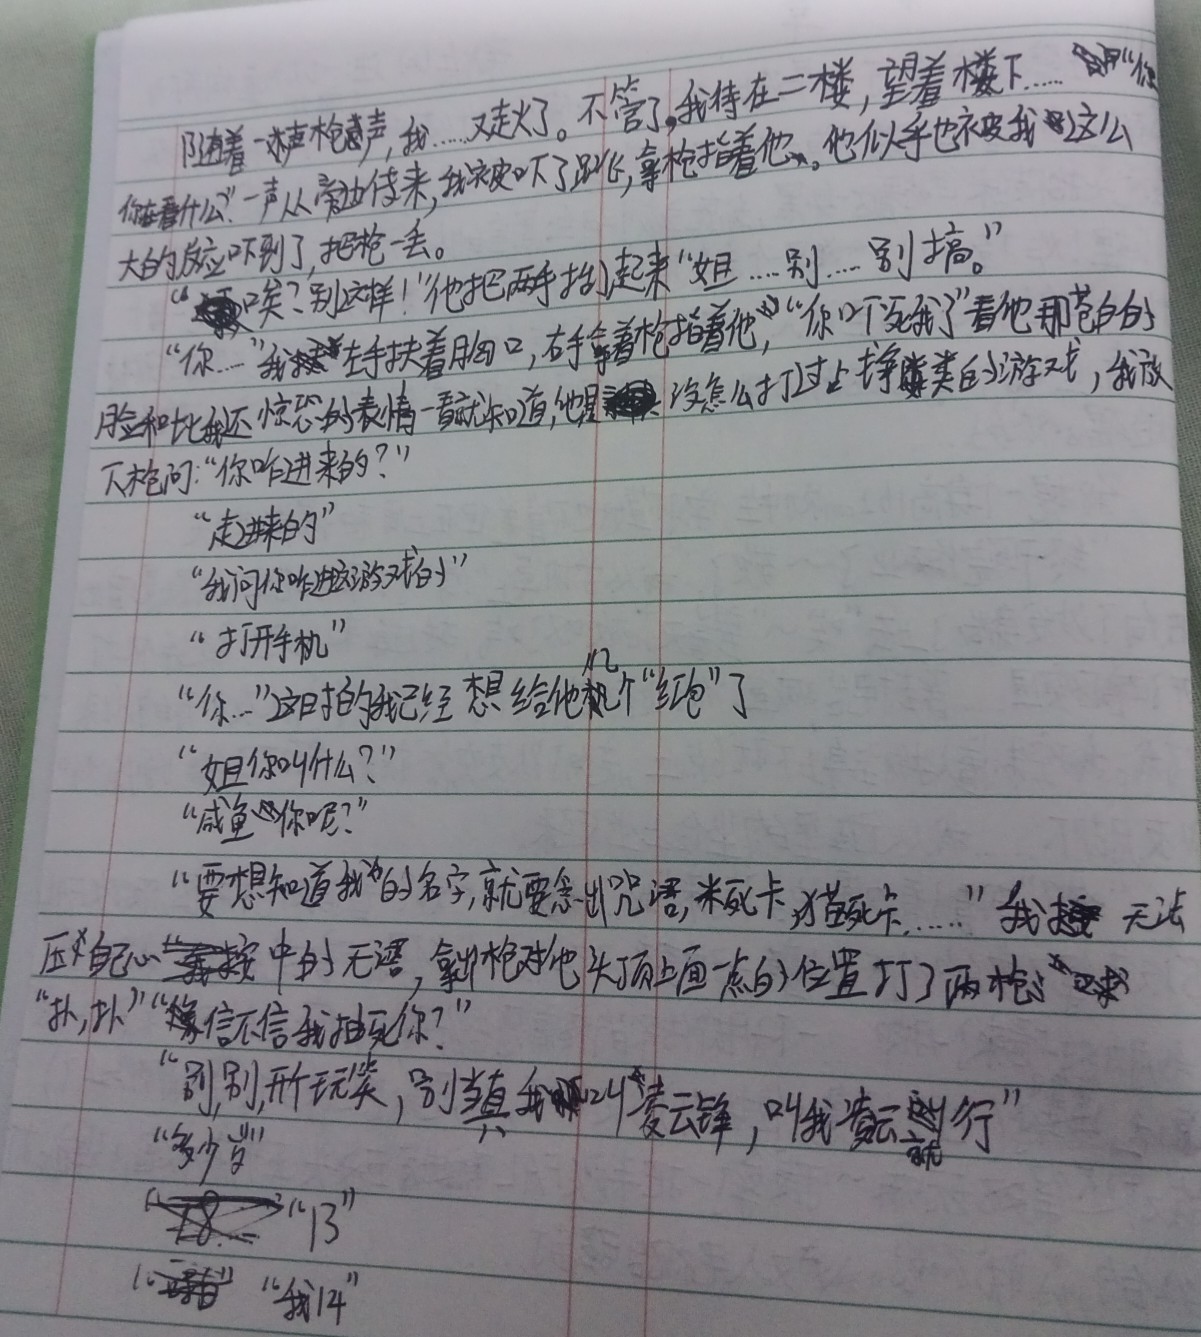 随着一声枪声，我……又走火了。不管了，我待在二楼，望着楼下……“你
你在看什么？”一声从旁边传来，我被吓了跳，拿枪指着他。他似乎也被我这么
大的反应吓到了，把枪一丢。
“唉？别这样！”他把两手抬起来“姐……别……别搞。”
“你……”我左手扶着胸口，右手拿着枪指着他，“你吓死我了”看他那苍白的
脸和比我还惊恐的表情一看就知道，他是没怎么打过战争类的游戏，我放
下枪问：“你咋进来的？”
“走进来的”
“我问你咋进这游戏的”
“打开手机”
“你……”这时的我已经想给他几个“红包”了
“姐你叫什么？”
“咸鱼你呢？”
“要想知道我的名字，就要念出咒语，米死卡，猫死卡……”我无法
压自己心中的无语，拿出枪对他头顶上面一点的位置打了两枪
“扑，扑”“信不信我抽死你？”
“别，别，开个玩笑，别当真我叫凌云锋，叫我凌云就行”
“多少岁”
“13”
“我14”